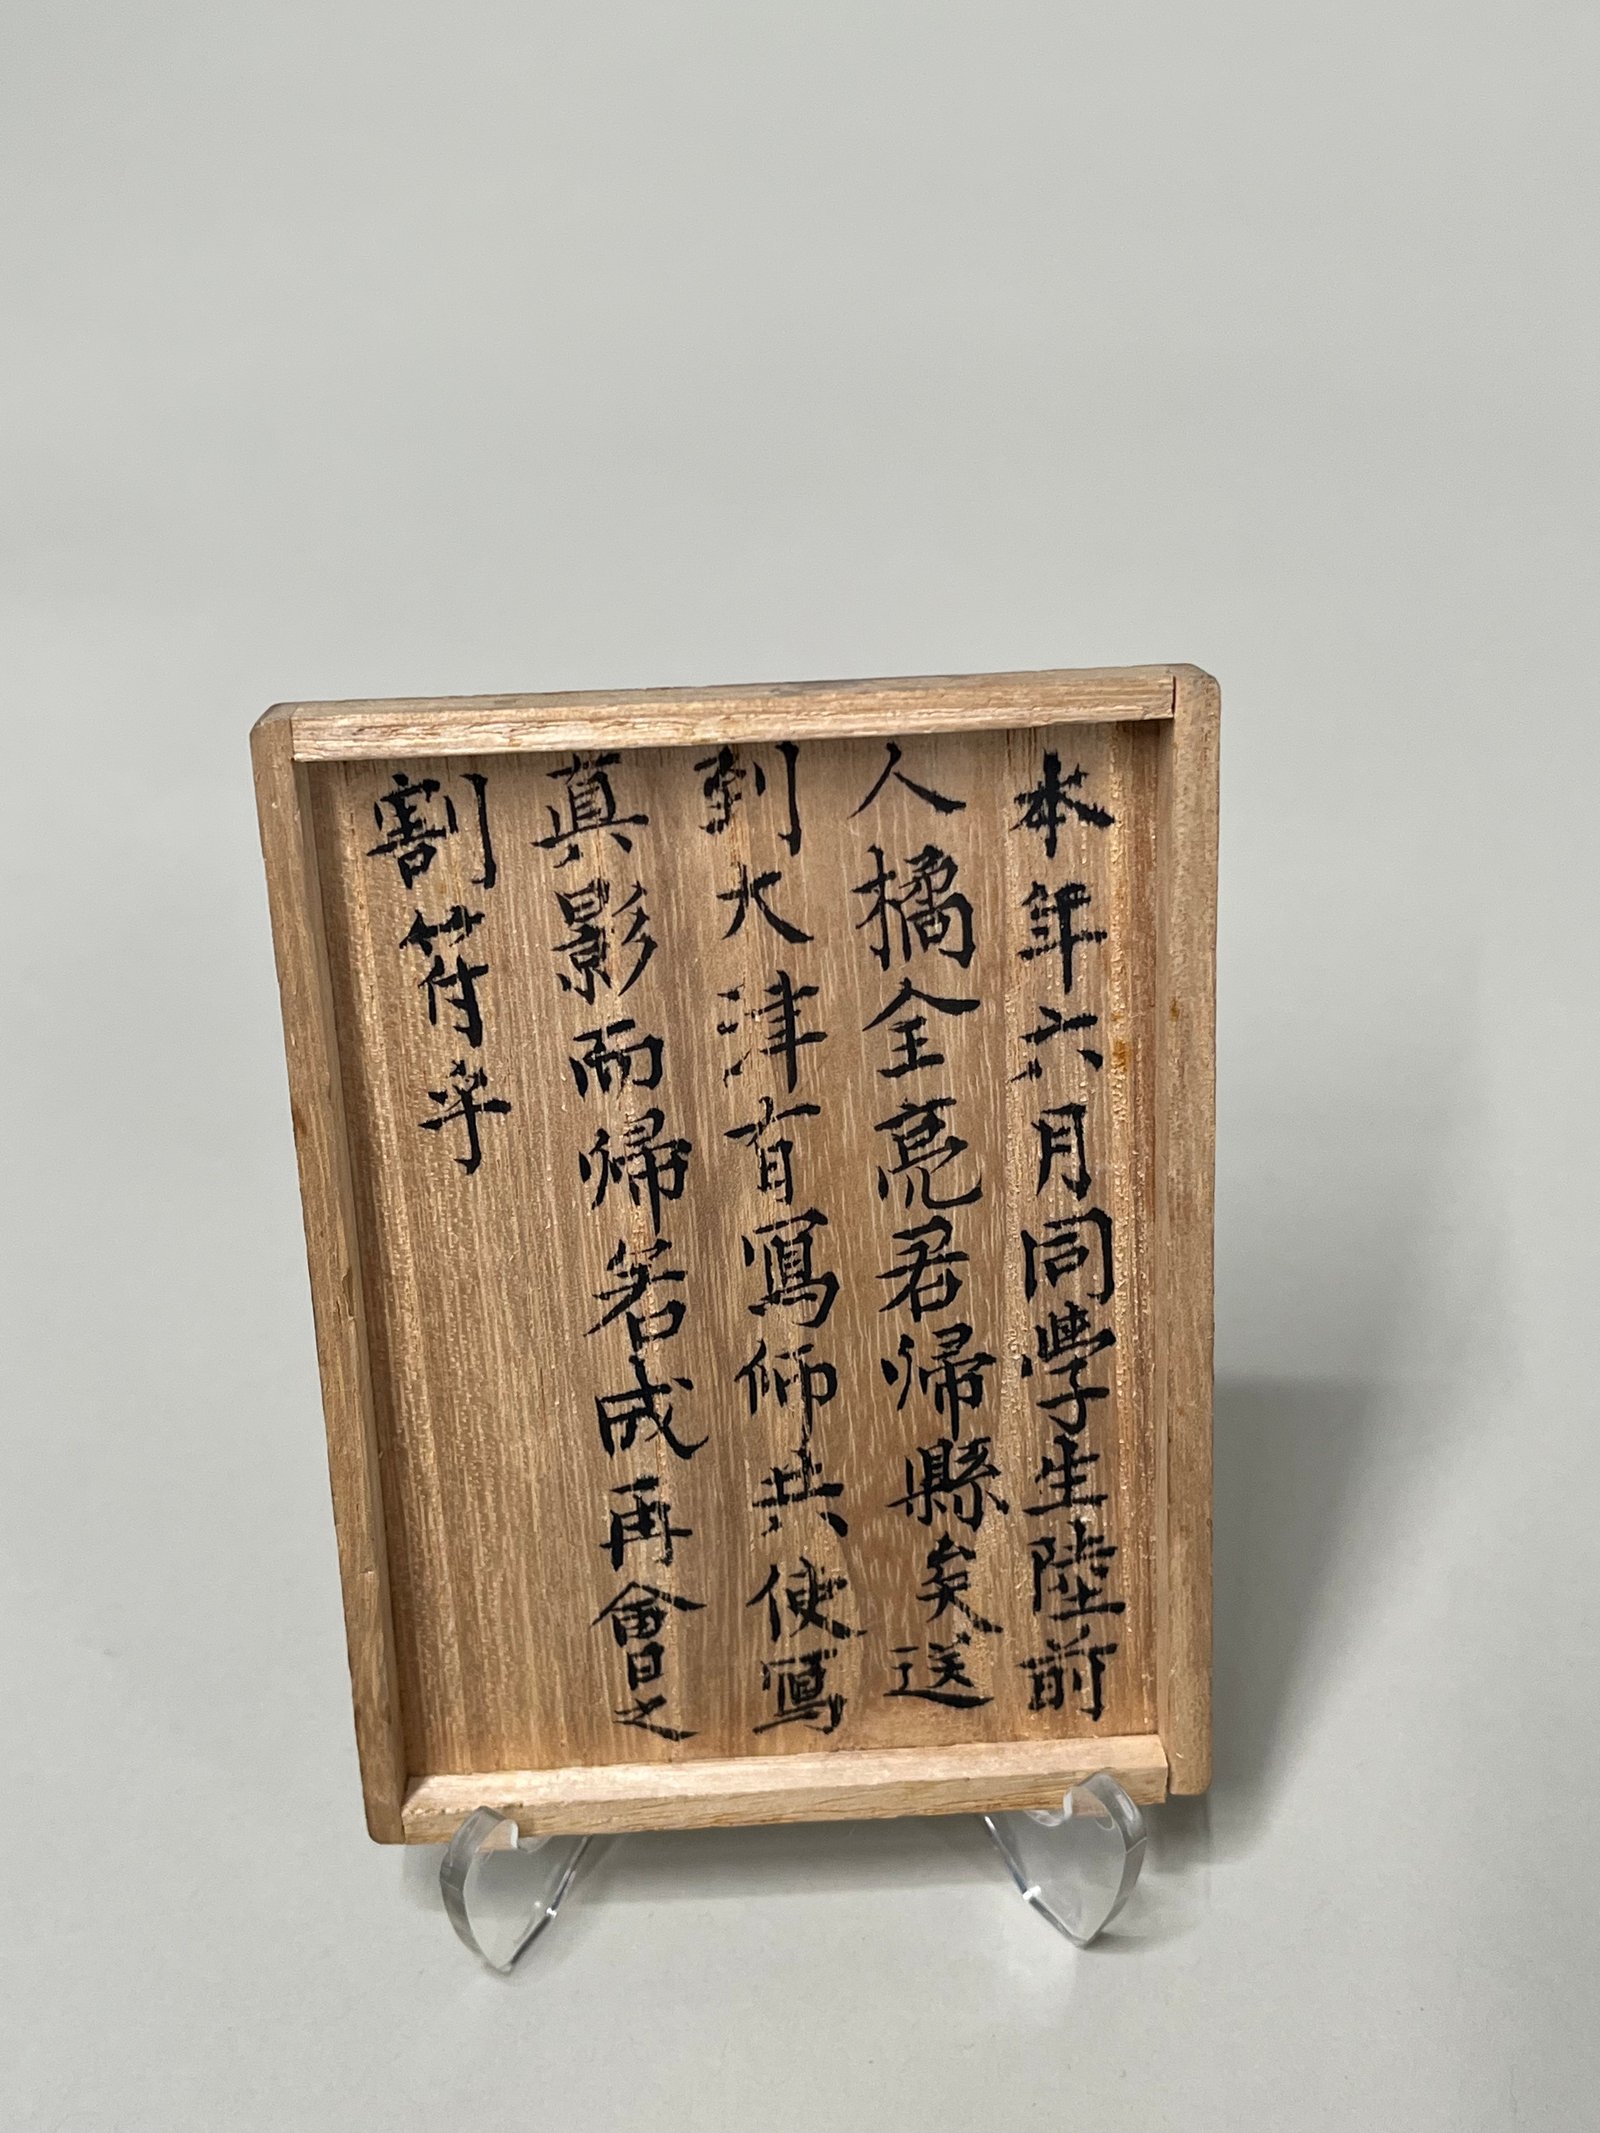 本年六月同學生陸前
人橘全亮君帰縣矣送
到大津有寫師共使寫
眞影而帰若成再會之
割符乎